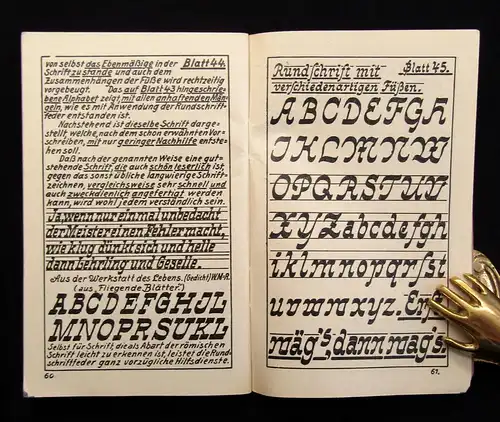 von selbst das Ebenmäßige in der Blatt 44.
Schrift zustande und auch dem
Zusammenhängen der Füße wird rechtzeitig
vorgebeugt. Das auf Blatt 43 hingeschrie-
bene Alphabet zeigt, mit allen anhaftenden Män-
geln, wie es mit Anwendung der Rundschrift-
feder entstanden ist.
Nachstehend ist dieselbe Schrift darge-
stellt, welche, nach dem schon erwähnten Vor-
schreiben, mit nur geringer Nachhilfe entste-
hen soll.
Daß nach der genannten Weise eine gut-
stehende Schrift, die auch schön leserlich ist,
gegen das sonst übliche langwierige Schrift-
zeichnen, vergleichsweise sehr schnell und
auch zweckdienlich angefertigt werden
kann, wird wohl jedem verständlich sein.
Ja, wenn nur einmal unbedacht
der Meister einen Fehler macht,
wie klug dünkt sich und helle
dann Lehrling und Geselle.
Aus der Werkstatt des Lebens. (Gedicht) W.M-R.
(aus „Fliegende Blätter")
ABCDEFGHJL
MNOPRSUKL
Selbst für Schrift, die als Abart der römischen
Schrift leicht zu erkennen ist, leistet die Rund-
schriftfeder ganz vorzügliche Hilfsdienste.
60
Rundschrift mit Blatt 45.
verschiedenartigen Füßen.
ABCDEFGH
IKLMNMNW
OPQRSTUV
XYZabcdefgh
iklmnmnopqrſst
uvownmxyz. Erſt
wäg's, dann wag's.
61.